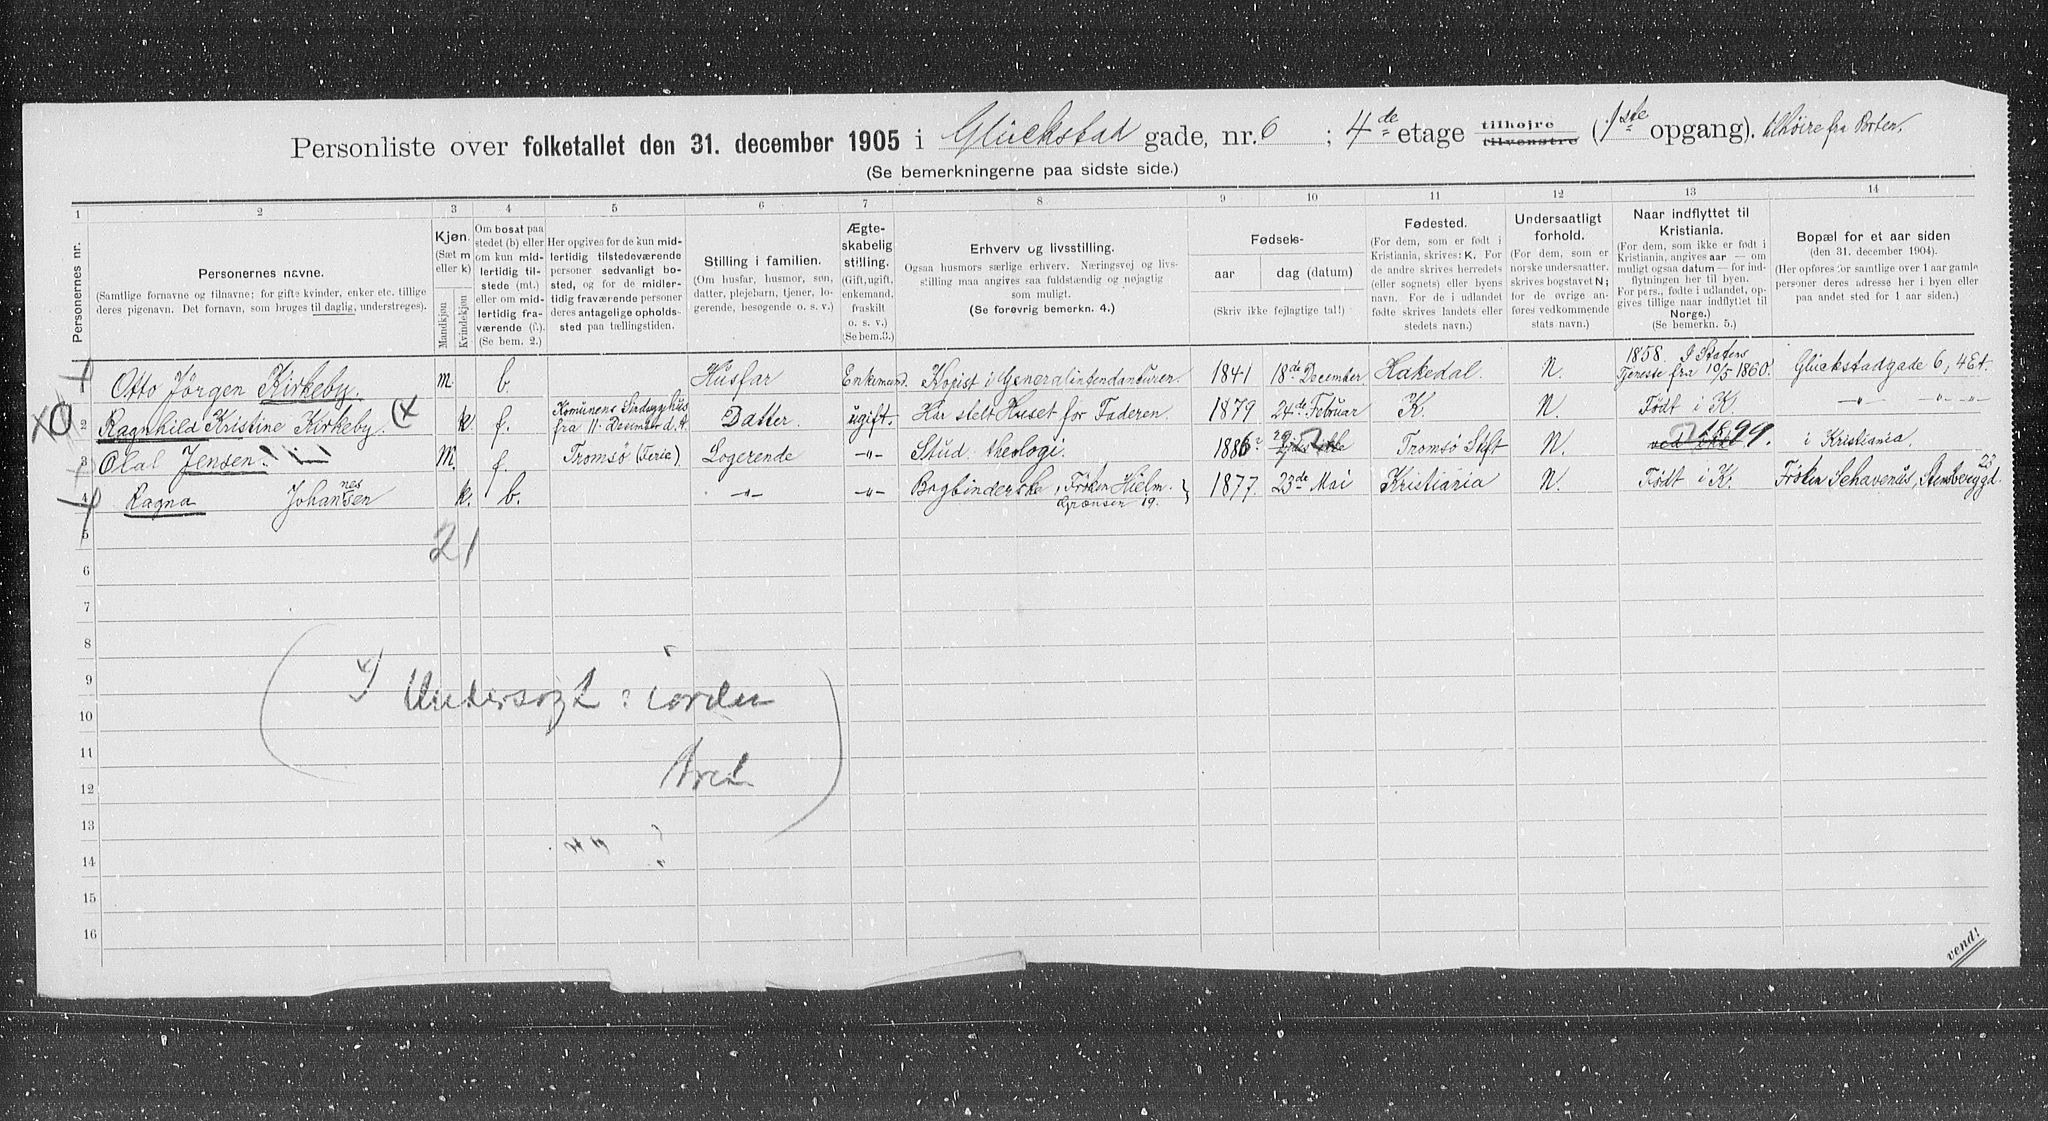 Personliste over folketallet den 31. december 1905 i Glückstad gade, nr. 6 ; 4de etage tilhøjre tilvenstre (1ste opgang). tilhøire fra Porten.
(Se bemerkningerne paa sidste side.)
1 2 3 4 5 6 7 8 9 10 11 12 13 14
Personernes nr.
Personernes navne.
(Samtlige fornavne og tilnavne; for gifte kvinder, enker etc. tillige deres pigenavn. Det fornavn, som bruges til daglig, understreges).
Kjøn.
(Sæt m eller k)
Mandkjøn
Kvindekjøn
Om bosat paa stedet (b) eller om kun midlertidig tilstede (mt.) eller om midlertidig fraværende (f.). (Se bem. 2.)
Her opgives for de kun midlertidig tilstedeværende personer sedvanligt bosted, og for de midlertidig fraværende personer deres antagelige opholdssted paa tællingstiden.
Stilling i familien.
(Om husfar, husmor, søn, datter, plejebarn, tjener, logerende, besøgende o. s. v.)
Ægteskabelig stilling.
(Gift, ugift, enkemand, fraskilt o. s. v.)
(Se bem. 3.)
Erhverv og livsstilling.
Ogsaa husmors særlige erhverv. Næringsvej og livsstilling maa angives saa fuldstændig og nøjagtig som muligt.
(Se forøvrig bemerkn. 4.)
Fødsels-
aar
dag (datum)
(Skriv ikke fejlagtige tal!)
Fødested.
(For dem, som er født i Kristiania, skrives: K. For de andre skrives herredets (eller sognets) eller byens navn. For de i udlandet fødte skrives landets eller stedets navn.)
Undersaatligt forhold.
(For dem, som er norske undersaatter, skrives bogstavet N; for de øvrige anføres vedkommende stats navn.)
Naar indflyttet til Kristiania.
(For dem, som ikke er født i Kristiania, angives aar — om muligt ogsaa datum — for indflytningen her til byen. For pers., fødte i udlandet, opgives tillige naar indflyttet til Norge.)
(Se bemerkn. 5.)
Bopæl for et aar siden
(den 31. december 1904).
(Her opføres for samtlige over 1 aar gamle personer deres adresse her i byen eller paa andet sted for 1 aar siden.)
1 Otto Jörgen Kirkeby. m b. Husfar Enkemand. Kopist i Generalintendanturen. 1841 18de December Hakedal. N. 1858. I Statens Tjeneste fra 10/5 1860. Glückstadgade 6, 4 Et.
2 Ragnhild Kristine Kirkeby. (x k. f. Komunens Sindssygehus fra 11. December d. A. Datter. ugift. Har stelt Huset for Faderen. 1879 24de Februar K. N. Født i K. —"— —"—"—
3 Olaf Jensen. M. f. Tromsö (Ferie). Logerende —"— Stud. theologi. 1886 ? Tromsö Stift N. 1899. i Kristiania.
4 Ragna Johannesen k. b. —"— —"— Bogbinderske, Frøken Hielm. Grænsen 19. 1877. 23de Mai Kristiania N. Født i K. Frøken Sehavenüs, Stensberggd. 23
5
21
6
7
8
9
10
11
12
13
14
15
16
x) Undersøgt: iorden
vend!